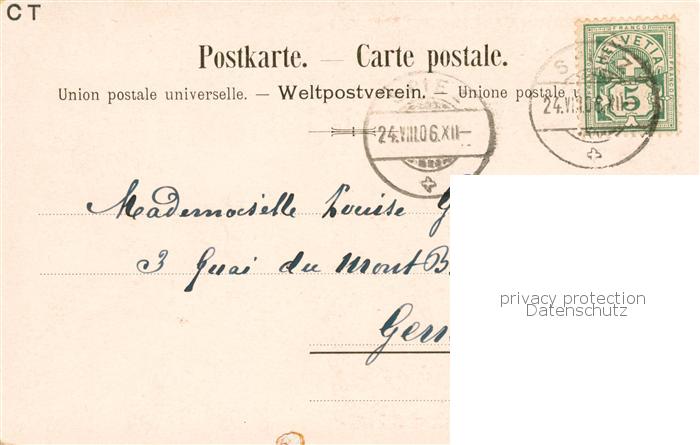 CT
Postkarte. — Carte postale.
Union postale universelle. — Weltpostverein. — Unione postale u
HELVETIA
FRANCO
5
24.VIII.06.XII—
24.VIII.06.XII—
Mademoiselle Louise G
3 Quai du Mont B
privacy protection
Datenschutz